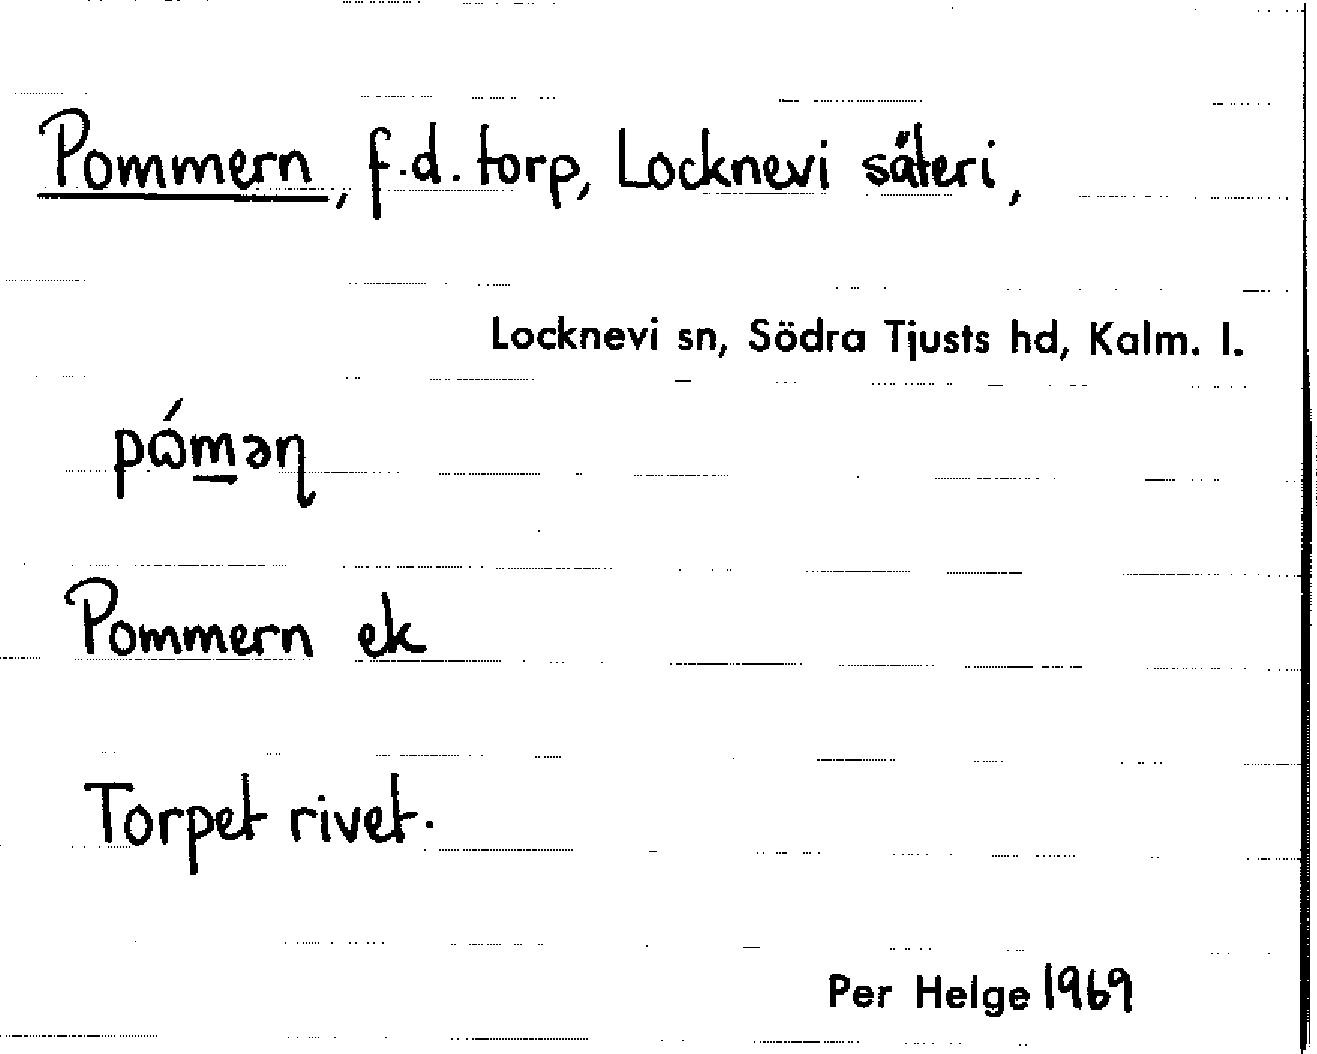 Pommern, f.d. torp, Locknevi säteri,
Locknevi sn, Södra Tjusts hd, Kalm. l.
pɷ́m̲əɳ
Pommern ek
Torpet rivet.
Per Helge 1969